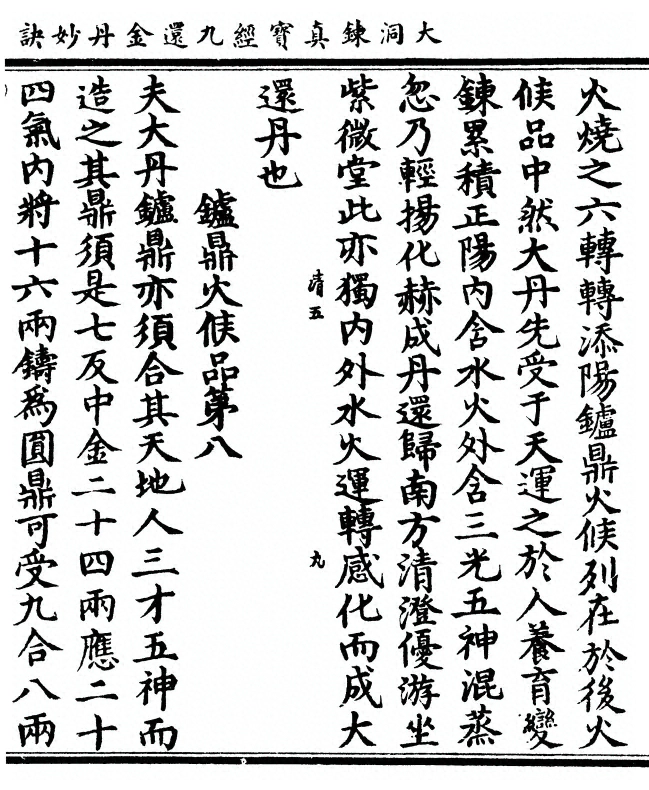 大洞鍊真寶經九還金丹妙訣
火燒之六轉轉添陽鑪鼎火候列在於後火
候品中然大丹先受于天運之於人養育變
鍊累積正陽內含水火外含三光五神混蒸
忽乃輕揚化赫成丹還歸南方清澄優游坐
紫微堂此亦獨內外水火運轉感化而成大
清五
九
還丹也
鑪鼎火候品第八
夫大丹鑪鼎亦須合其天地人三才五神而
造之其鼎須是七反中金二十四兩應二十
四氣內將十六兩鑄為圓鼎可受九合八兩